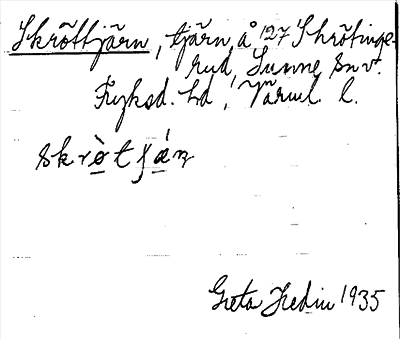 Skröttjärn, tjärn, å 127 Skrötinge-
rud, Sunne sn v.
Fryksd. hd, Värml. l.
skrö̀tʃǽṇ
Greta Hedin 1935